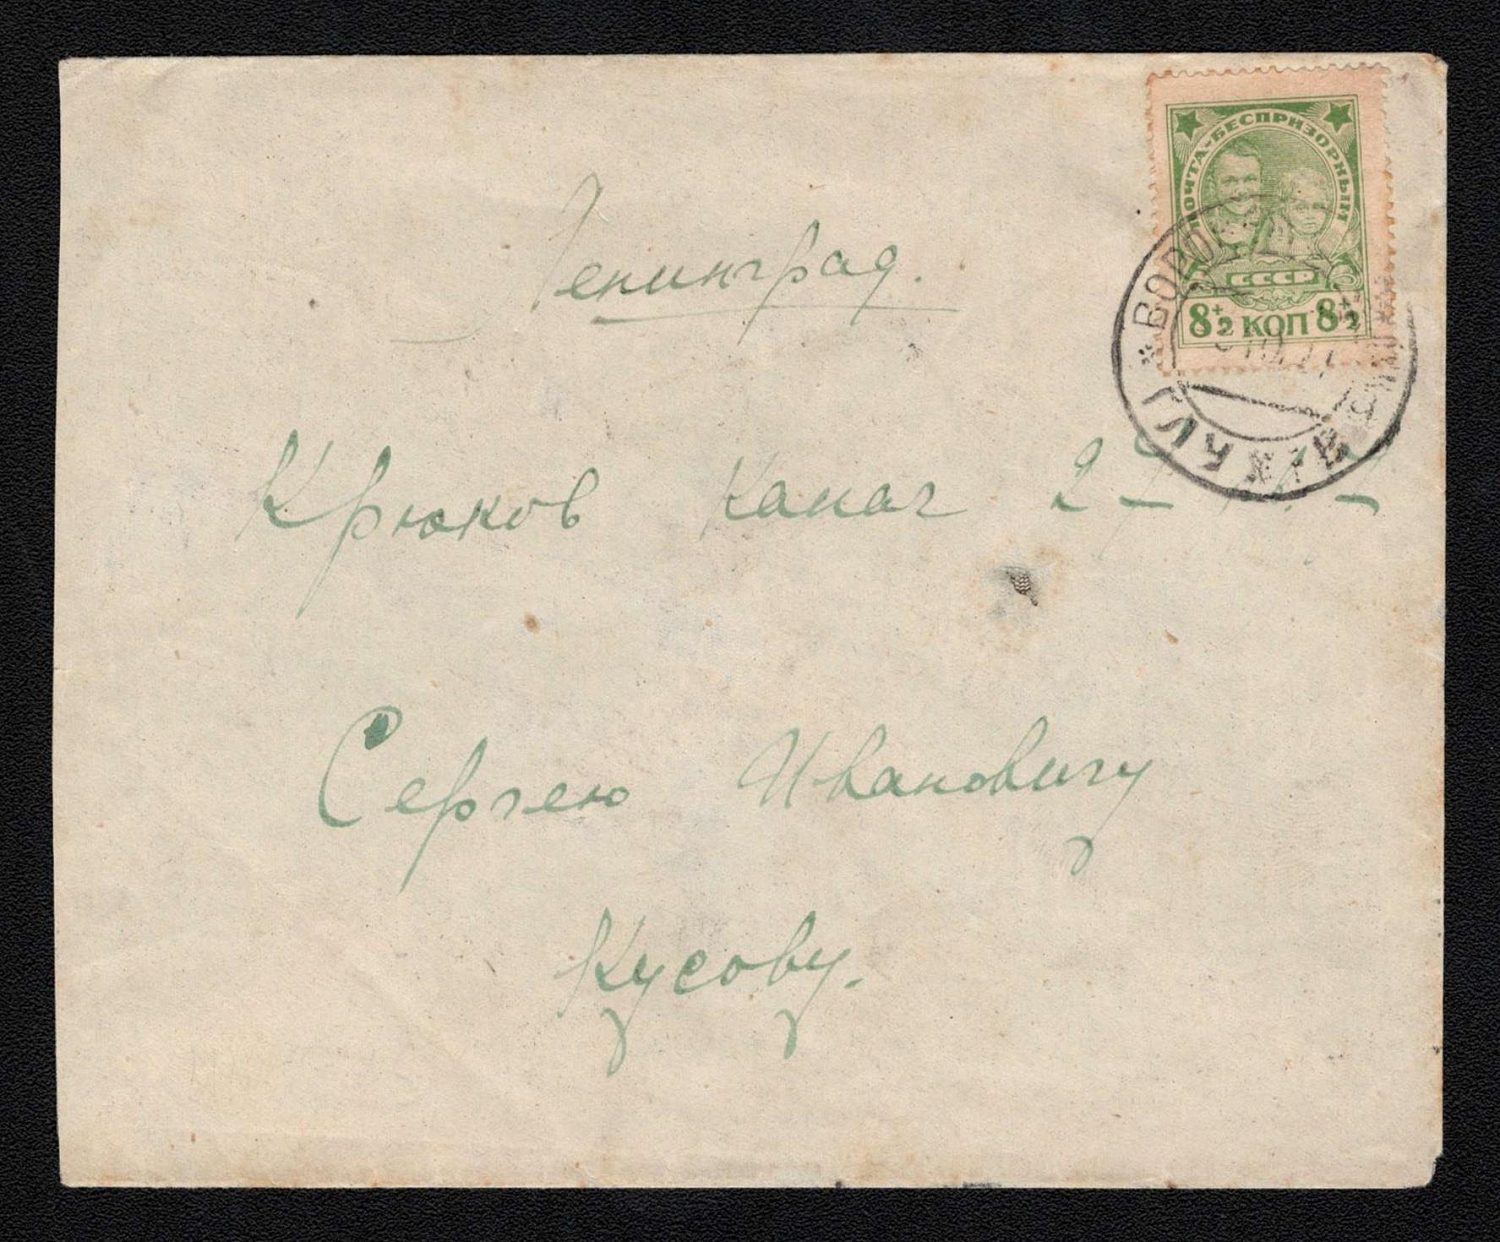 ПОЧТА-БЕСПРИЗОРНЫМ
СССР
8+2 КОП 8+2
Ленинград.
Крюков Канал
Сергею Ивановичу
Кусову.